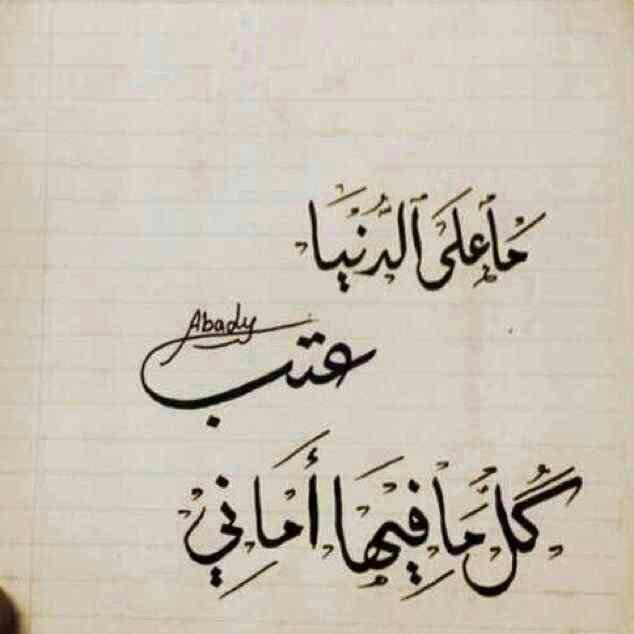 مَا عَلَى ٱلدُّنْيَا
عتب
Abady
كُلُّ مَا فِيهَا أَمَانِي